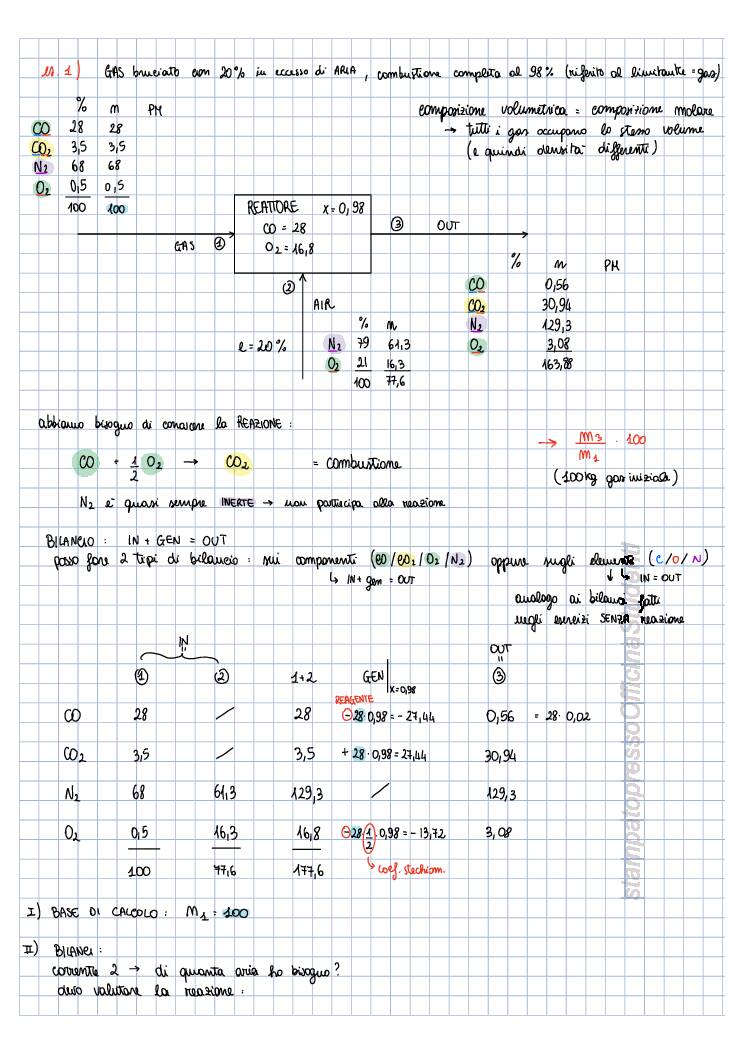 es. 1) GAS bruciato con 20% in eccesso di ARIA, combustione completa al 98% (riferito al limitante = gas)
% n PM
CO 28 28
CO2 3,5 3,5
N2 68 68
O2 0,5 0,5
100 100
composizione volumetrica = composizione molare
→ tutti i gas occupano lo stesso volume
(e quindi densità differenti)
REATTORE x=0,98
CO = 28
O2 = 16,8
GAS ①
③ OUT
②
AIR
e=20%
% n
N2 79 61,3
O2 21 16,3
100 77,6
% n PM
CO 0,56
CO2 30,94
N2 129,3
O2 3,08
163,88
abbiamo bisogno di conoscere la REAZIONE:
CO + 1/2 O2 → CO2 = combustione
→ m3/m1 · 100
(100kg gas iniziale)
N2 è quasi sempre INERTE → non partecipa alla reazione
BILANCIO: IN + GEN = OUT
posso fare 2 tipi di bilancio: sui componenti (CO/CO2/O2/N2) oppure sugli elementi (C/O/N)
↳ IN+gen = OUT
↓ ↳ IN=OUT
analogo ai bilanci fatti
negli esercizi SENZA reazione
IN OUT
① ② 1+2 GEN|x=0,98 ③
REAGENTE
CO 28 / 28 -28·0,98=-27,44 0,56 = 28·0,02
CO2 3,5 / 3,5 +28·0,98=27,44 30,94
N2 68 61,3 129,3 / 129,3
O2 0,5 16,3 16,8 -28·1/2·0,98=-13,72 3,08
100 77,6 177,6
↳ coef. stechiom.
I) BASE DI CALCOLO: M1 = 100
II) BILANCI:
corrente 2 → di quanta aria ho bisogno?
devo valutare la reazione:
stampatopressoOfficinaStudenti